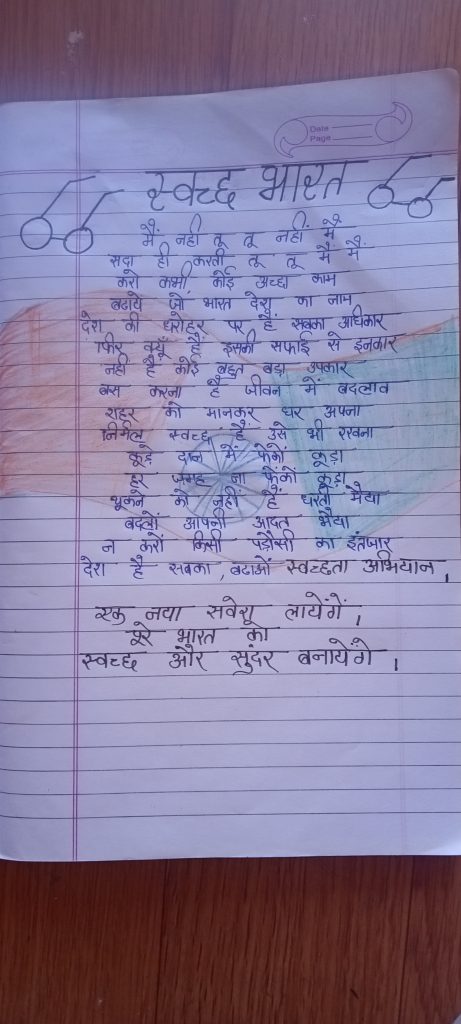 Date
Page
स्वच्छ भारत
मैं नही तू तू नहीं मैं
सदा ही करती तू तू मैं मैं
करो कभी कोई अच्छा काम
बढाये जो भारत देश का नाम
देश की धरोहर पर है सबका अधिकार
फिर क्यूँ है इसकी सफाई से इनकार
नही है कोई बहुत बड़ा उपकार
बस करना है जीवन में बदलाव
शहर को मानकर घर अपना
निर्मल स्वच्छ है उसे भी रखना
कूड़े दान में फेकों कूड़ा
हर जगह ना फेंकों कूड़ा
थूकने को नहीं हैं धरती मैया
बदलों आपनी आदत भैया
न करों किसी पड़ौसी का इंतजार
देश है सबका, बढाओं स्वच्छता अभियान।
एक नया सवेरा लायेंगें।
पूरे भारत को
स्वच्छ और सुंदर बनायेंगे।